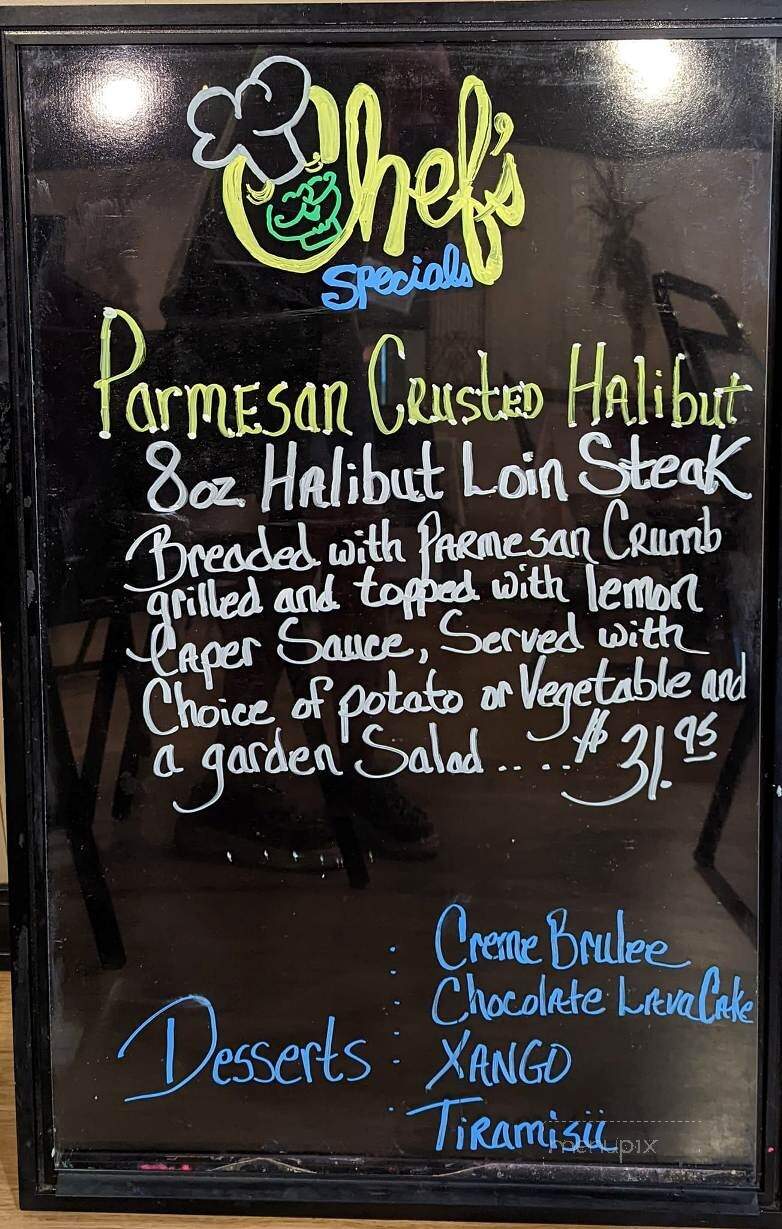 Chef's
Specials
Parmesan Crusted Halibut
8oz Halibut Loin Steak
Breaded with Parmesan Crumb
grilled and topped with lemon
Caper Sauce, Served with
Choice of potato or Vegetable and
a garden Salad .... $31.95
Creme Brulee
Chocolate Lava Cake
Desserts
XANGO
Tiramisii
menupix